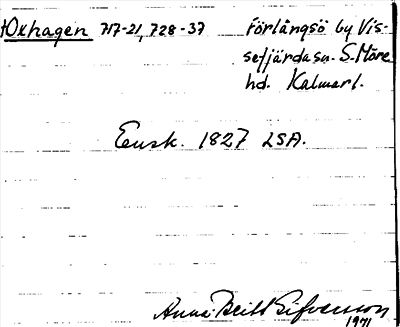 †Oxhagen 717-21, 728-37 Förlångsö by Vis-
sefjärda sn. S. Möre
hd. Kalmarl.
Ensk. 1827 LSA.
Anna-Britt Sifvesson
1971